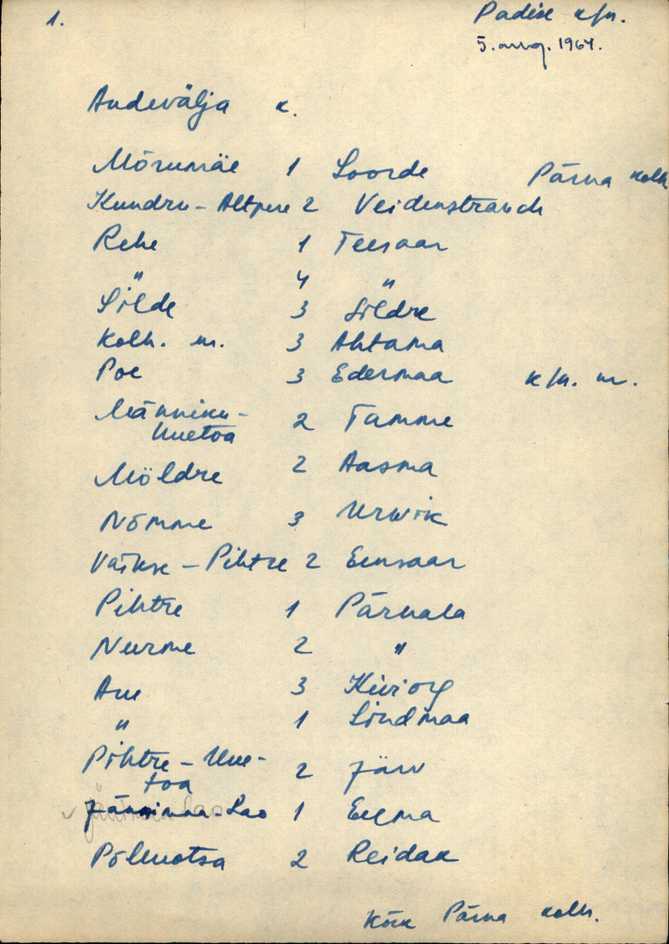 1. Padise k/n.
5. aug. 1964.
Audevälja k.
Mõrumäe 1 Loorde Pärna kolh
Kundru - Altpere 2 Veidenstrauch
Rehe 1 Teesaar
" 4 "
Silde 3 Sildre
Kolh. m. 3 Ahtama
Poe 3 Edermaa k/n. m.
Männiku-
Uuetoa 2 Tamme
Möldre 2 Aasma
Nõmme 3 Urwik
Väikse - Pihtre 2 Eensaar
Pihtre 1 Pärnala
Nurme 2 "
Aue 3 Kiviorg
" 1 Lindmaa
Pihtre - Uue-
toa 2 Järv
1 Eegma
Põlluotsa 2 Reidak
Kõik Pärna kolh.